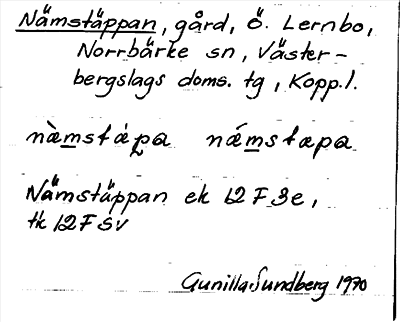 Nämstäppan, gård, Ö. Lernbo,
Norrbärke sn, Väster-
bergslags doms. tg, Kopp. l.
næ̀mstápa nǽmstæpa
Nämstäppan ek 12 F 3e,
tk 12 F SV
Gunilla Sundberg 1970